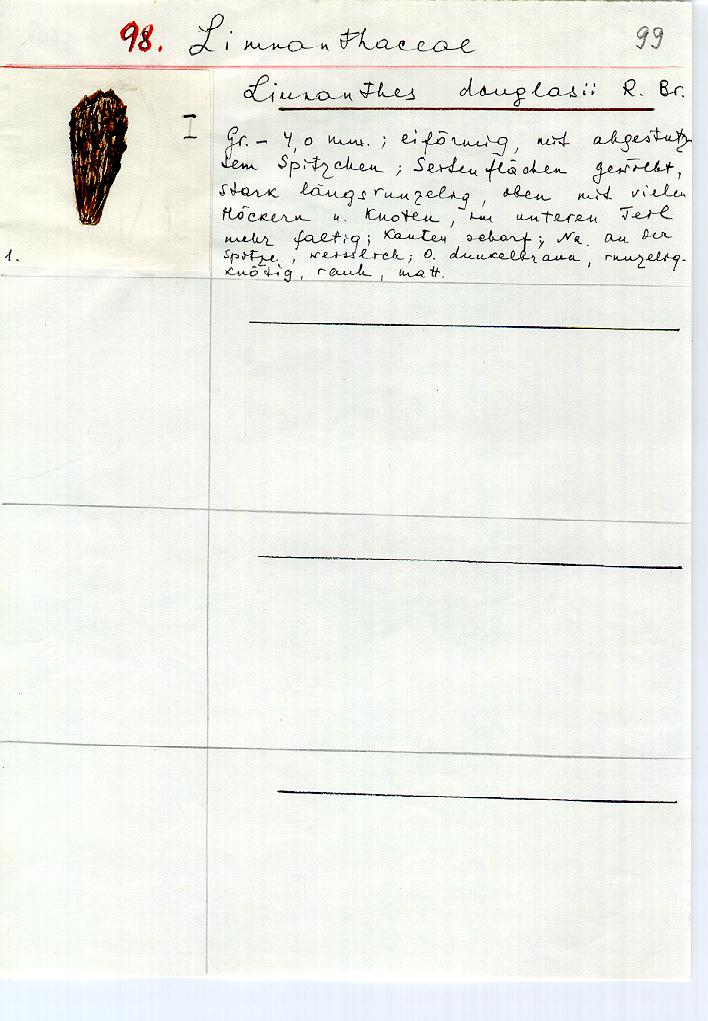 98. Limnanthaceae 99
Limnanthes douglasii R. Br.
Gr. – 4,0 mm.; eiförmig, mit abgestutz
tem Spitzchen; Seitenflächen gewölbt,
stark längsrunzelig, oben mit vielen
Höckern u. Knoten, im unteren Teil
mehr faltig; Kanten scharf; Na. an der
Spitze, weisslich; O. dunkelbraun, runzelig-
knotig, rauh, matt.
1.